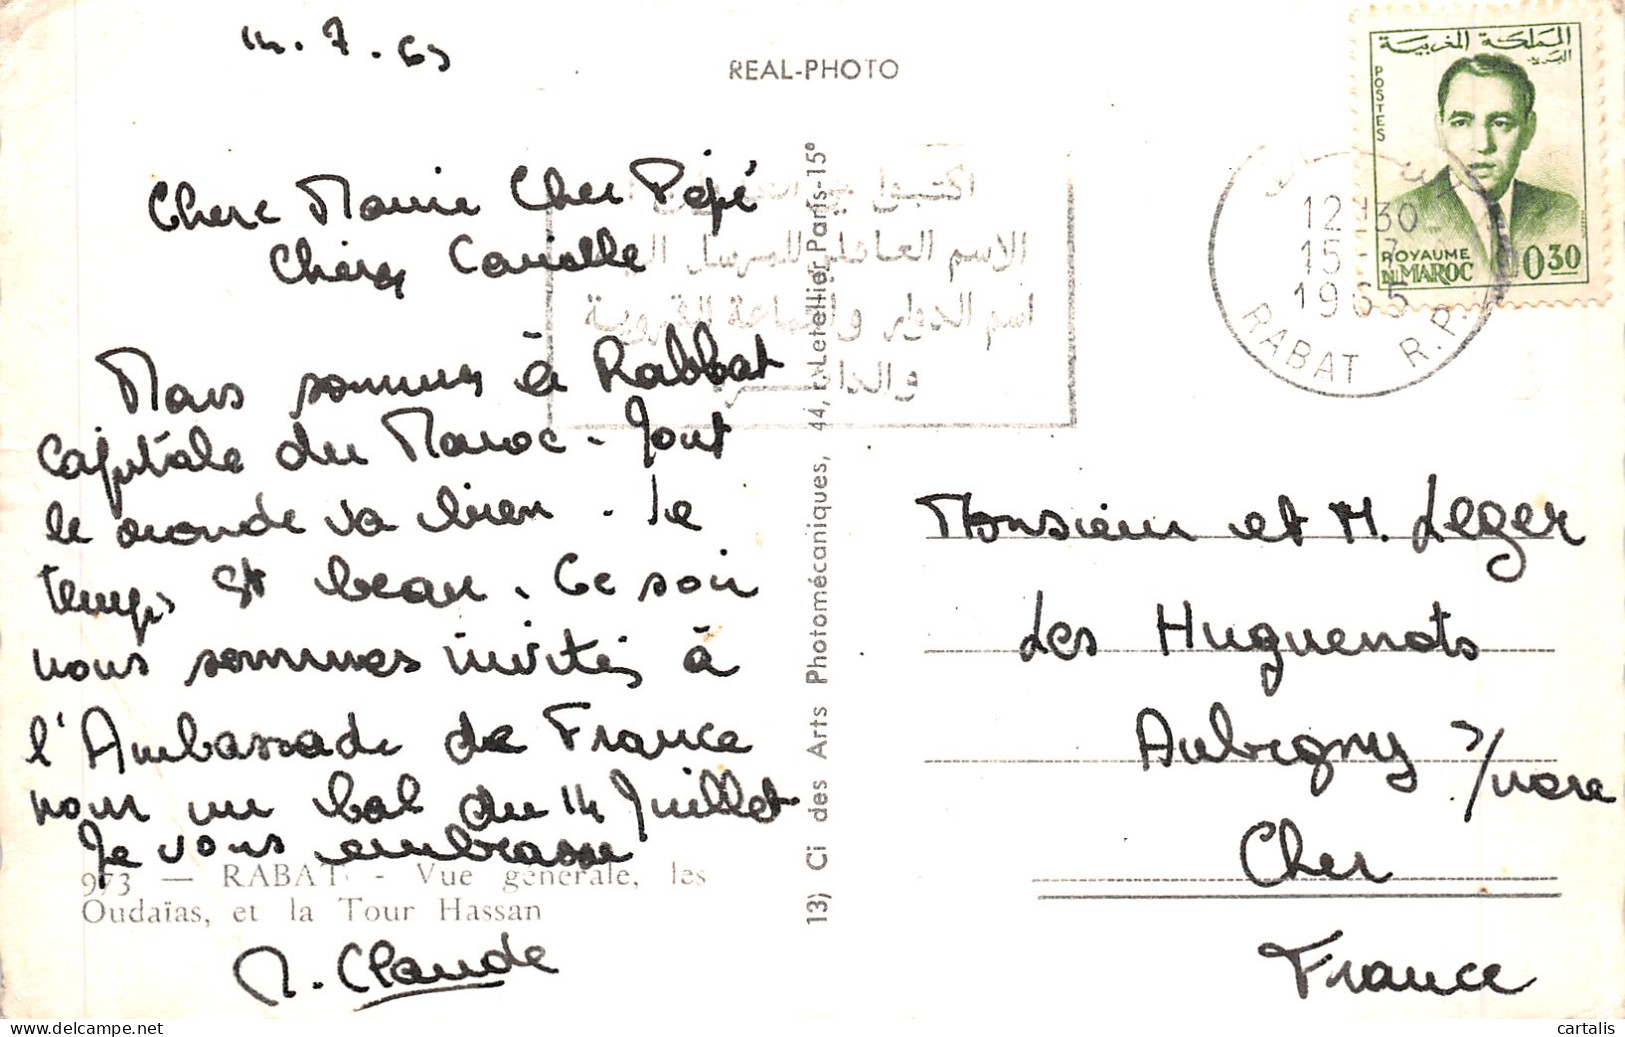 14.7.65
REAL-PHOTO
المملكة المغربية
البريد
POSTES
ROYAUME
DU MAROC
0,30
12H30
15-7
1965
RABAT R.P.
الاسم العائلي للمرسل اليه
اسم الدوار والجماعة القروية
Chere Mamie Cher Pépé
Chère Camille
Nous sommes à Rabbat
capitale du Maroc. Tout
le monde va bien. Le
temps est beau. Ce soir
nous sommes invités à
l'Ambassade de France
pour un bal du 14 Juillet
Je vous embrasse
973 — RABAT - Vue générale, les
Oudaïas, et la Tour Hassan
M. Claude
13) Ci des Arts Photomécaniques, 44, r. Letellier Paris-15e
Monsieur et M. Leger
Les Huguenots
Aubigny s/nere
Cher
France
cartalis